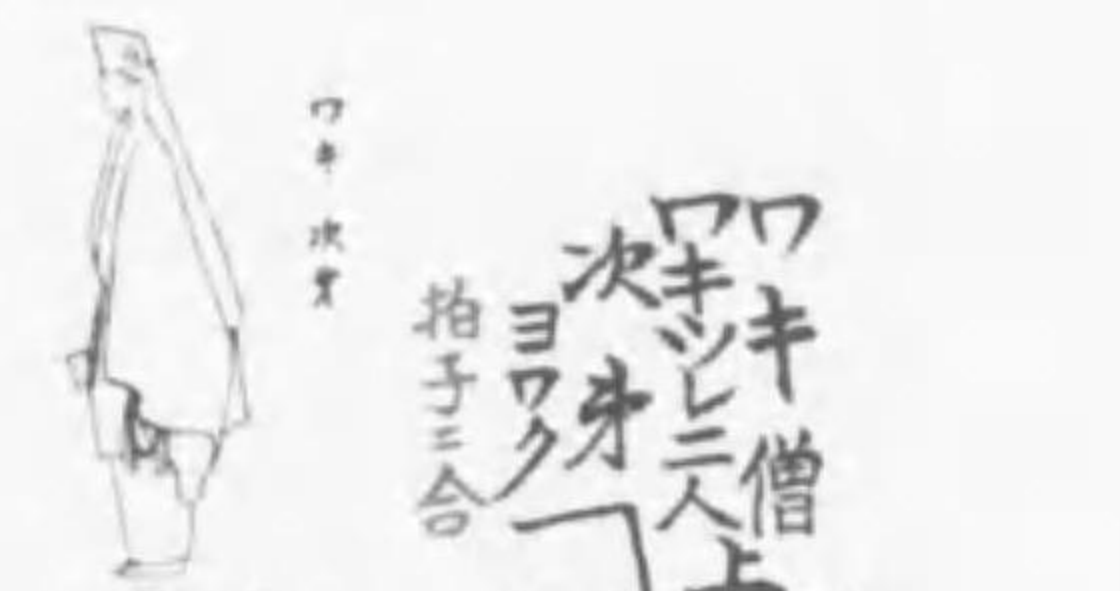 ワキ 僧
ワキツレ二人
次第
ヨワク
拍子ニ合
ワキ 次第